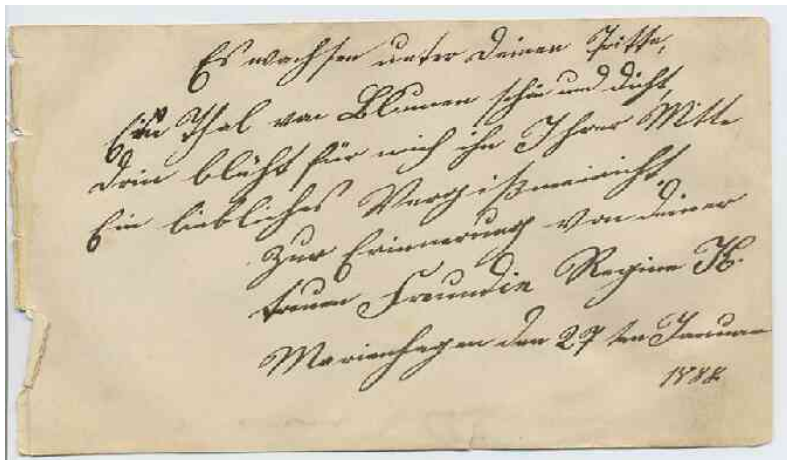 Es wachsen unter Deinen Tritte,
Ein Thal von Blumen schön und dicht,
Drin blüht für mich ihn Ihrer Mitte
Ein liebliches Vergißmeinicht.
Zur Erinnerung von deiner
treuen Freundin Regine K.
Marienhagen den 27 ten Januar
1888